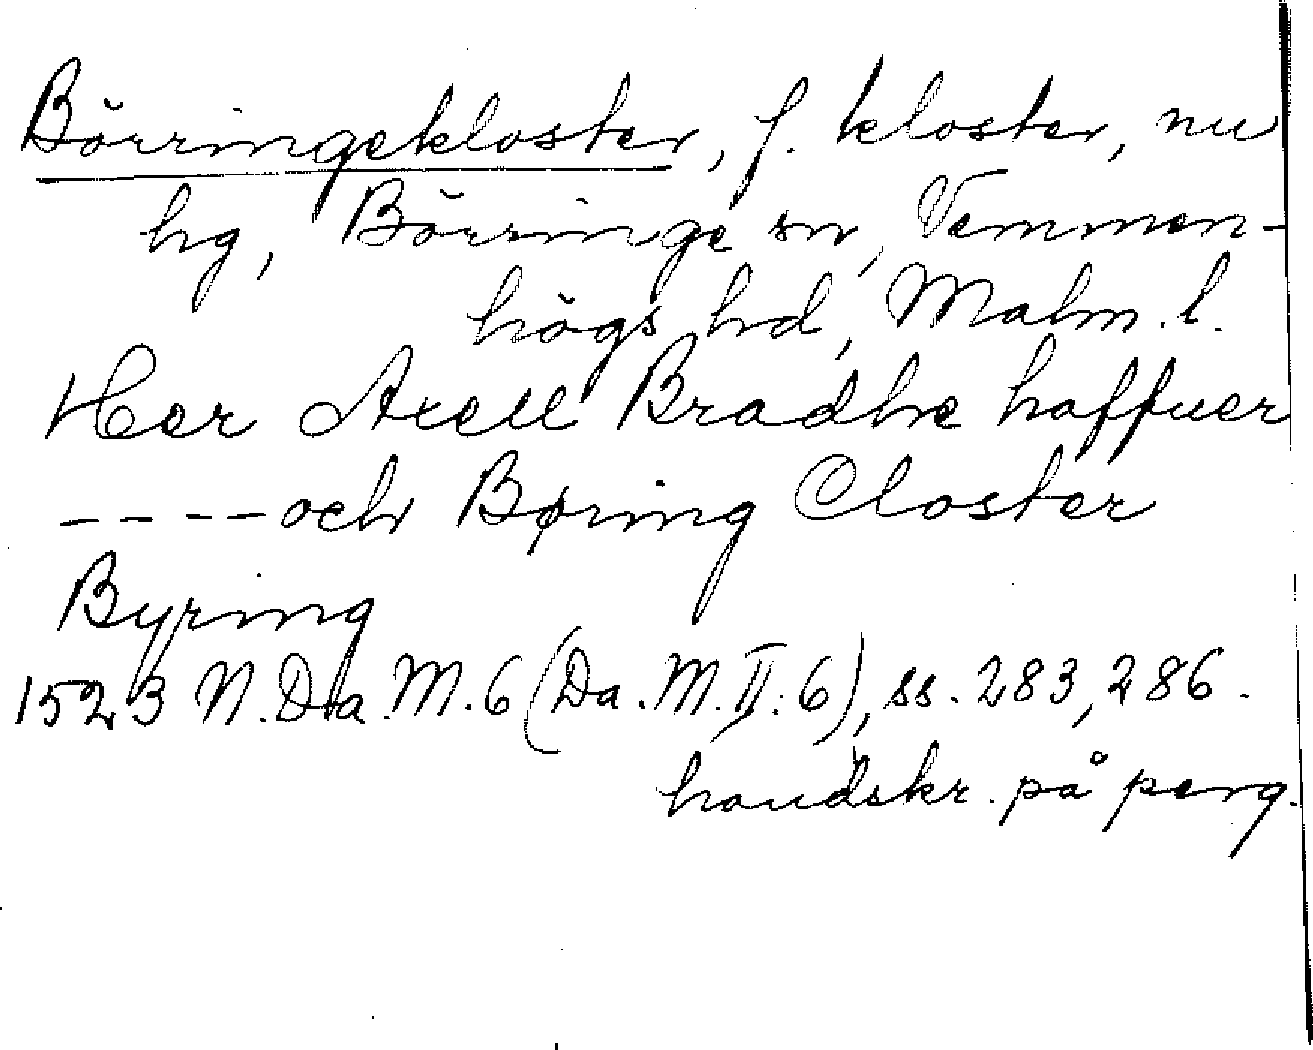 Börringekloster, f. kloster, nu
hg, Börringe sn, Vemmen-
högs hd, Malm. l.
Her Axell Bradhe haffuer
---- och Børing Closter
Byring
1523 N.Da.M.6 (Da.M.II:6), ss. 283, 286.
handskr. på perg.